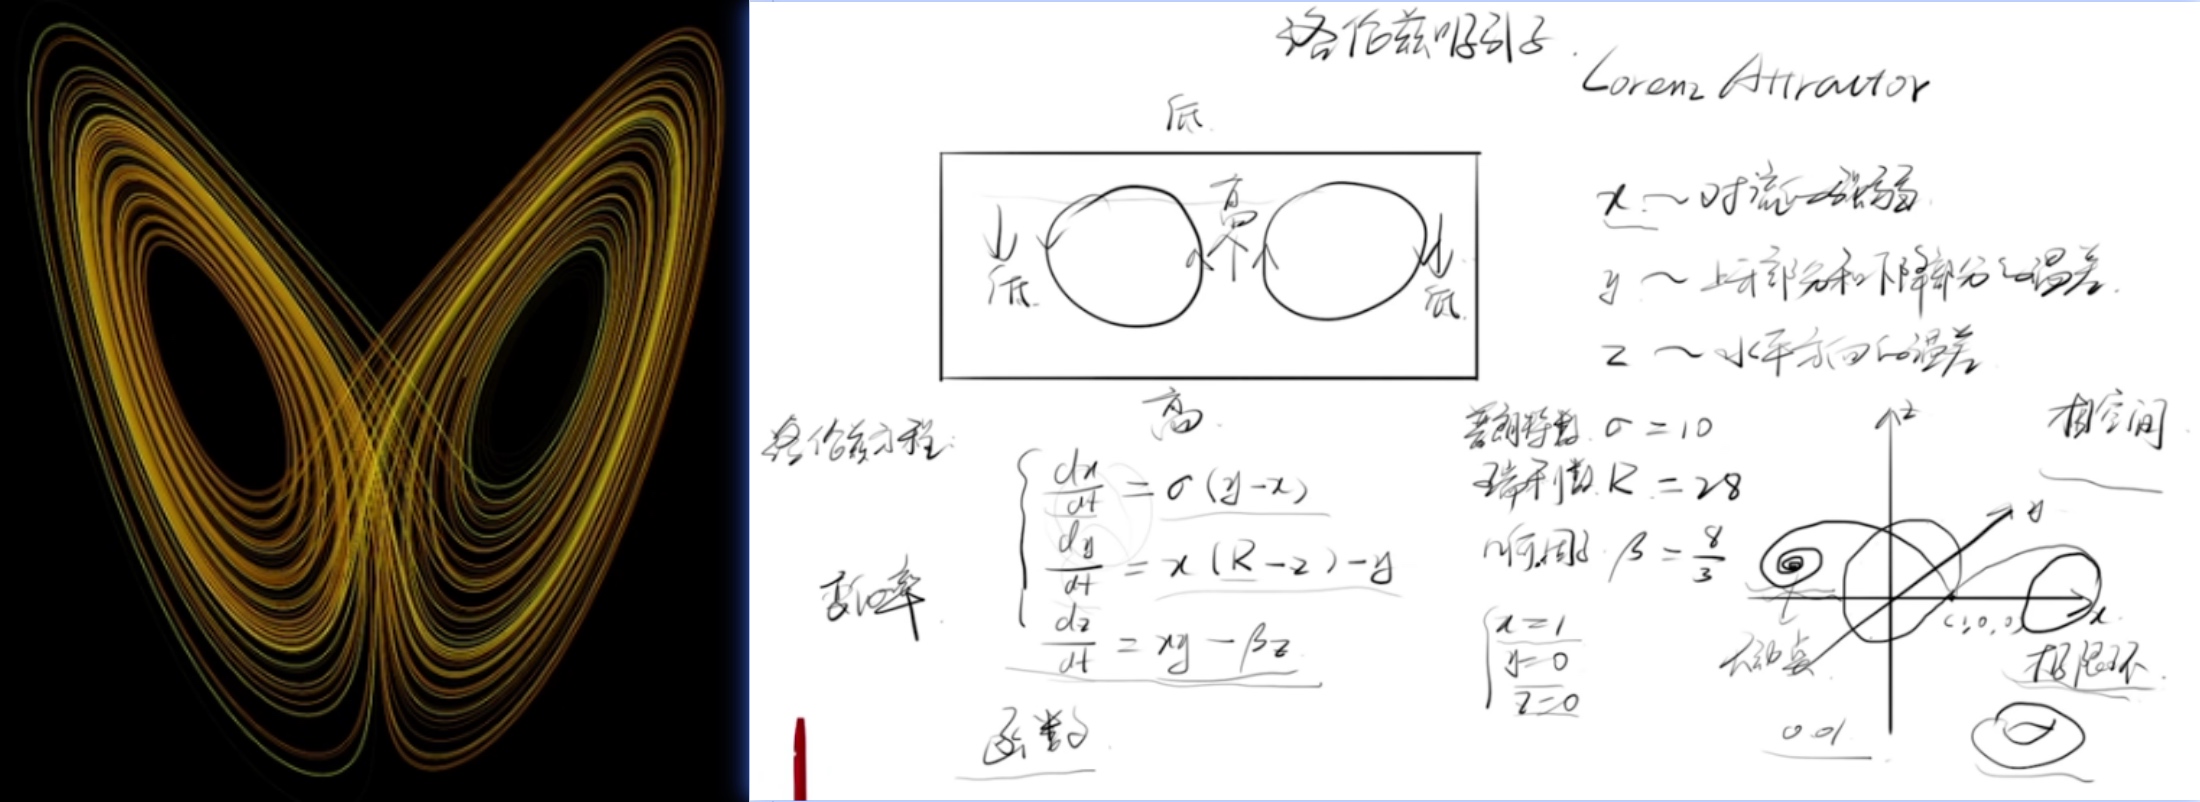 洛伦兹吸引子.
Lorenz Attractor
低.
高
低.
低.
高.
x ~ 对流的强弱.
y ~ 上升部分和下降部分的温差.
z ~ 水平方向的温差.
洛伦兹方程:
dx/dt = σ(y-x)
dy/dt = x(R-z)-y
dz/dt = xy-βz
变化率
函数
普朗特数. σ = 10
瑞利数. R = 28
β = 8/3
x=1
y=0
z=0
相空间
z
y
x
(1,0,0)
不动点
极限环.
0.01